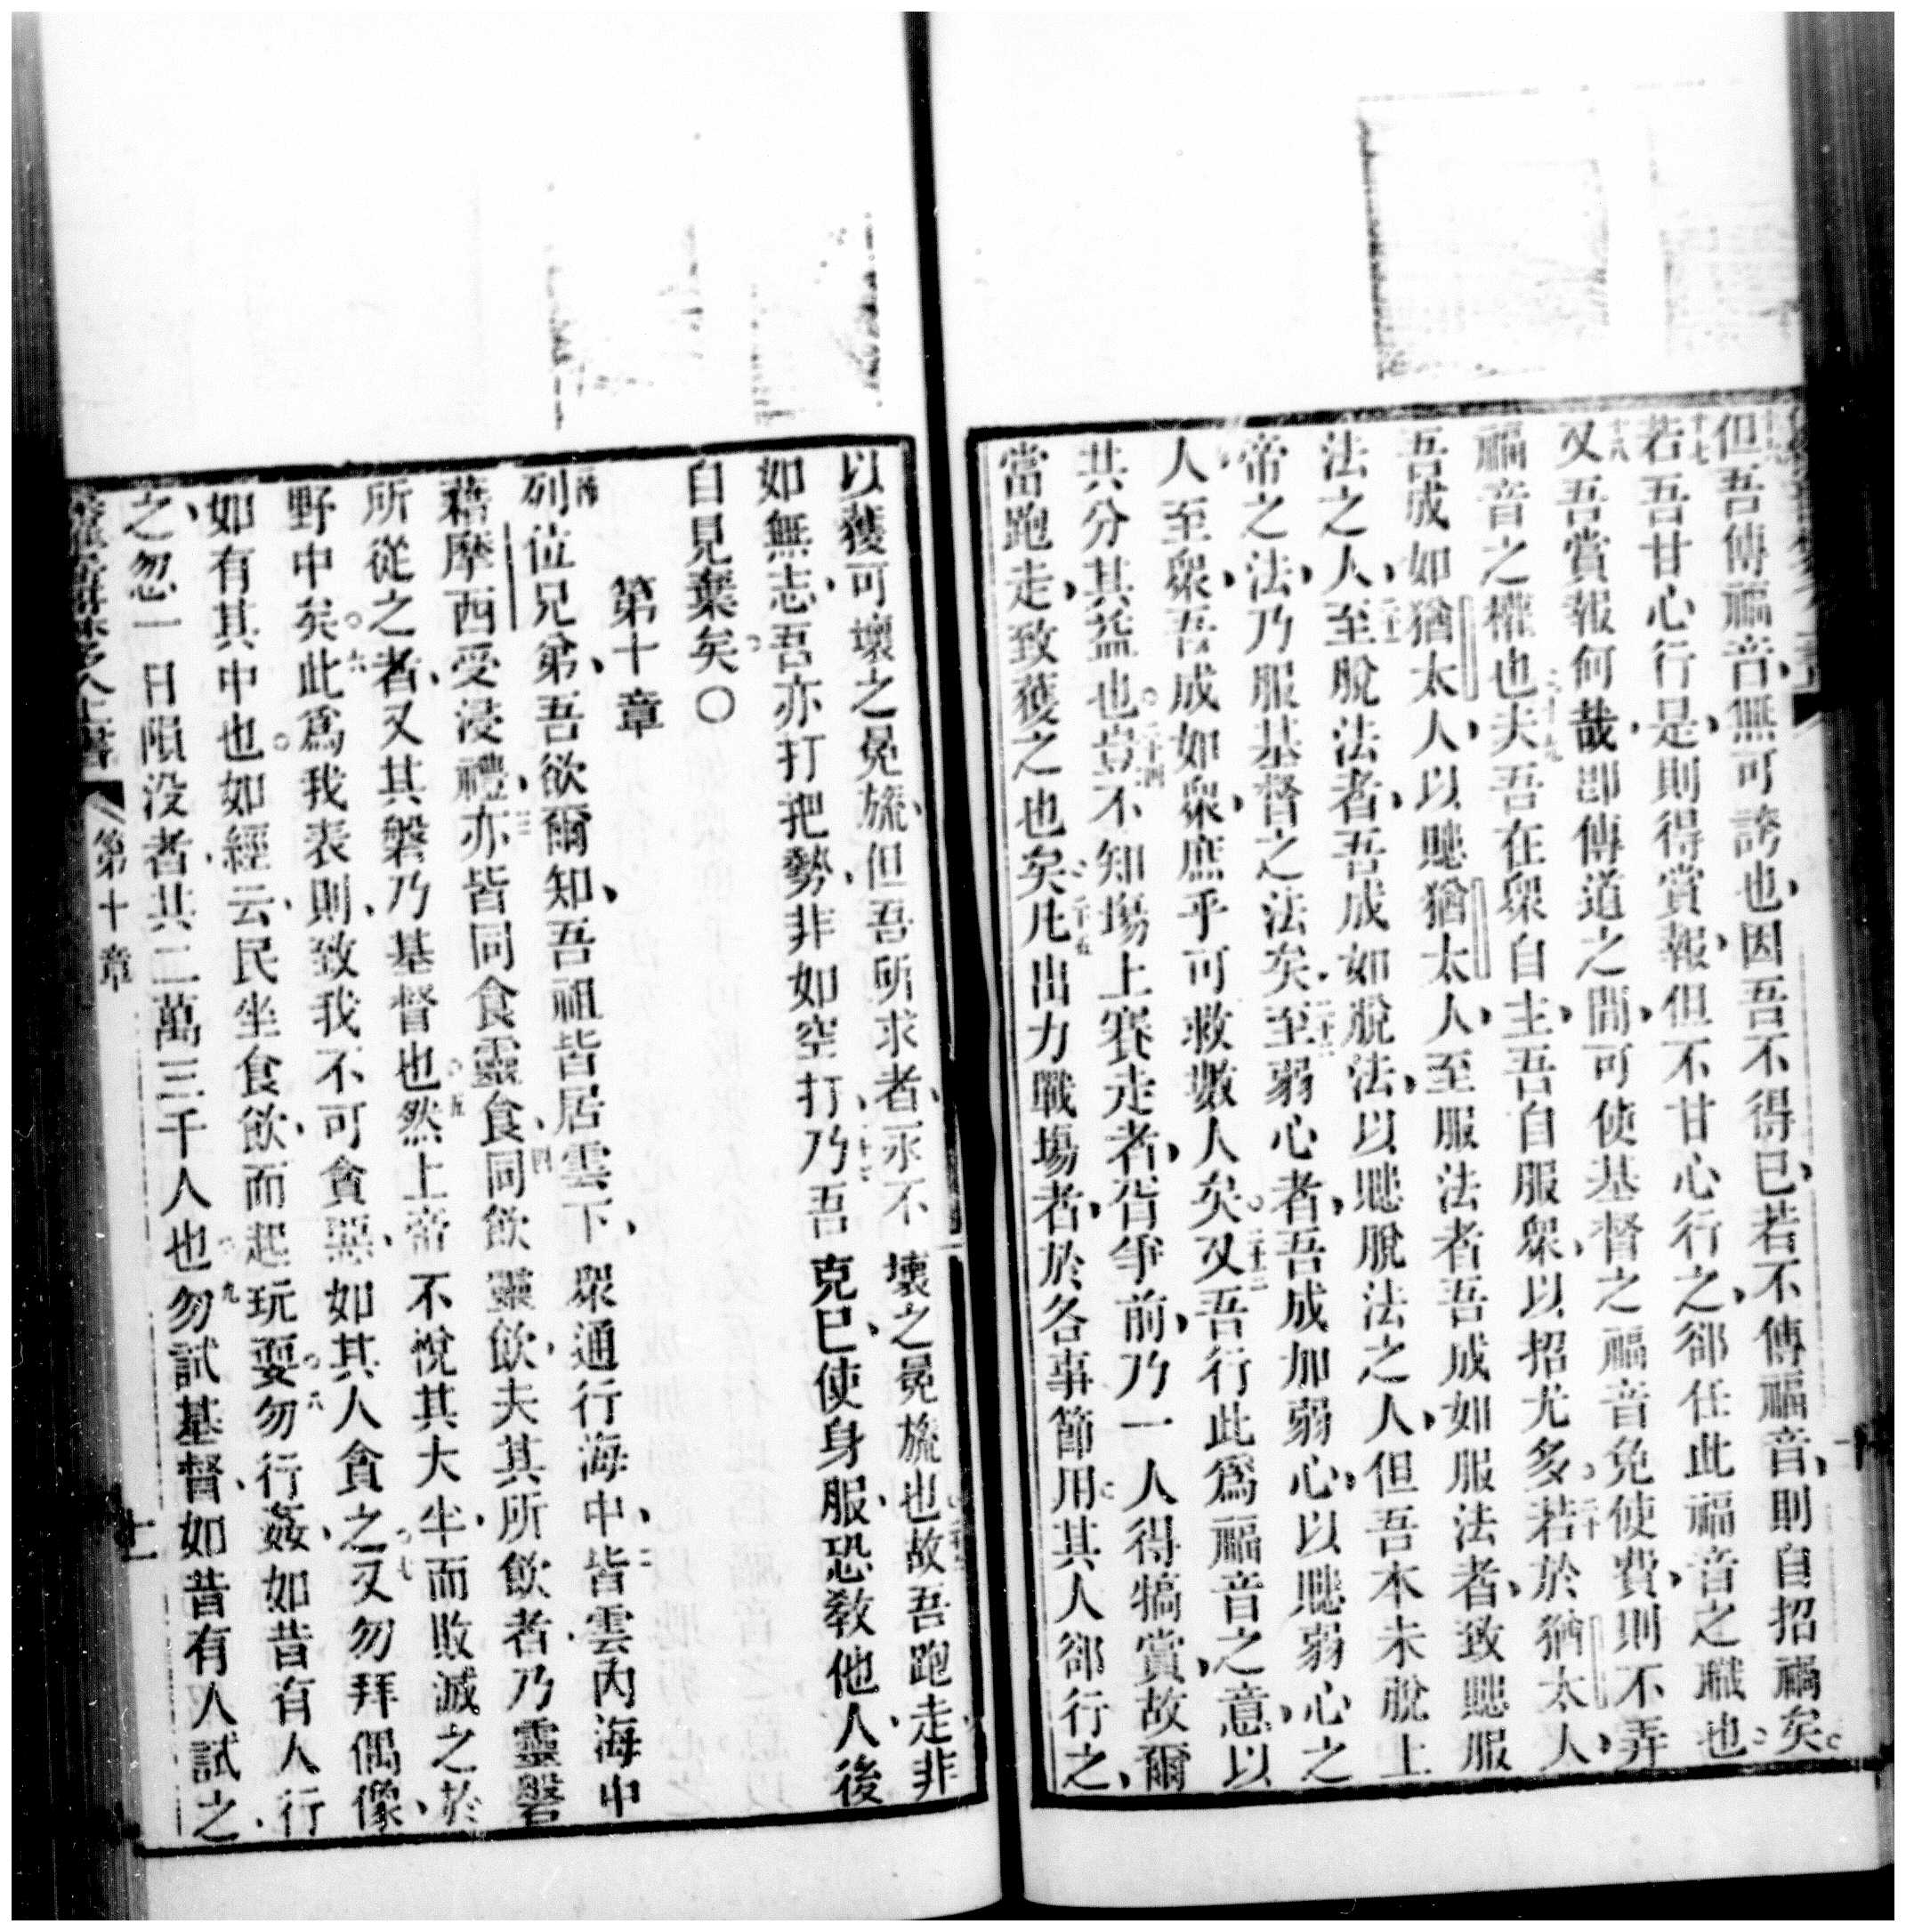 但吾傳福音、無可誇也、因吾不得已、若不傳福音、則自招禍矣。
十七若吾甘心行是、則得賞報、但不甘心行之、郤任此福音之職也。
十八又吾賞報何哉、卽傳道之間、可使基督之福音免使費、則不弄
福音之權也。十九夫吾在衆自主、吾自服衆、以招尤多。二十若於猶太人、
吾成如猶太人、以聽猶太人、至服法者吾成如服法者、致聽服
法之人、二十一至脫法者、吾成如脫法、以聽脫法之人、但吾本未脫上
帝之法、乃服基督之法矣。二十二至弱心者、吾成如弱心、以聽弱心之
人、至衆、吾成如衆、庶乎可救數人矣。二十三又吾行此爲福音之意、以
共分其益也。二十四豈不知場上賽走者、皆爭前、乃一人得犒賞、故爾
當跑走、致獲之也矣。二十五凡出力戰場者、於各事節用。其人郤行之、
以獲可壞之冕旒、但吾所求者、永不壞之冕旒也。故吾跑走、非
如無志、吾亦打把勢、非如空打、乃吾克己、使身服、恐教他人、後
自見棄矣。〇
第十章
列位兄弟、吾欲爾知、吾祖皆居雲下、衆通行海中、二皆雲內海中
藉摩西受浸禮、三亦皆同食靈食、四同飲靈飲、夫其所飲者、乃靈磐
所從之者、又其磐乃基督也。五然上帝不悅其大半、而敗滅之於
野中矣。六此爲我表則、致我不可貪惡、如其人貪之。七又勿拜偶像、
如有其中也。如經云、民坐食飲、而起玩耍。八勿行姦、如昔有人行
之、忽一日隕没者、共二萬三千人也。九勿試基督、如昔有人試之、
第十章